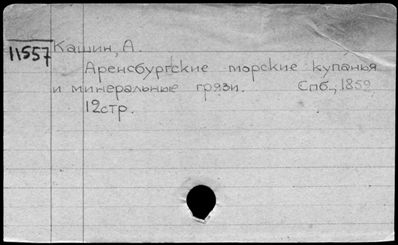 11557 Кашин, А.
Аренсбургские морские купанья
и минеральные грязи. Спб., 1852
12стр.